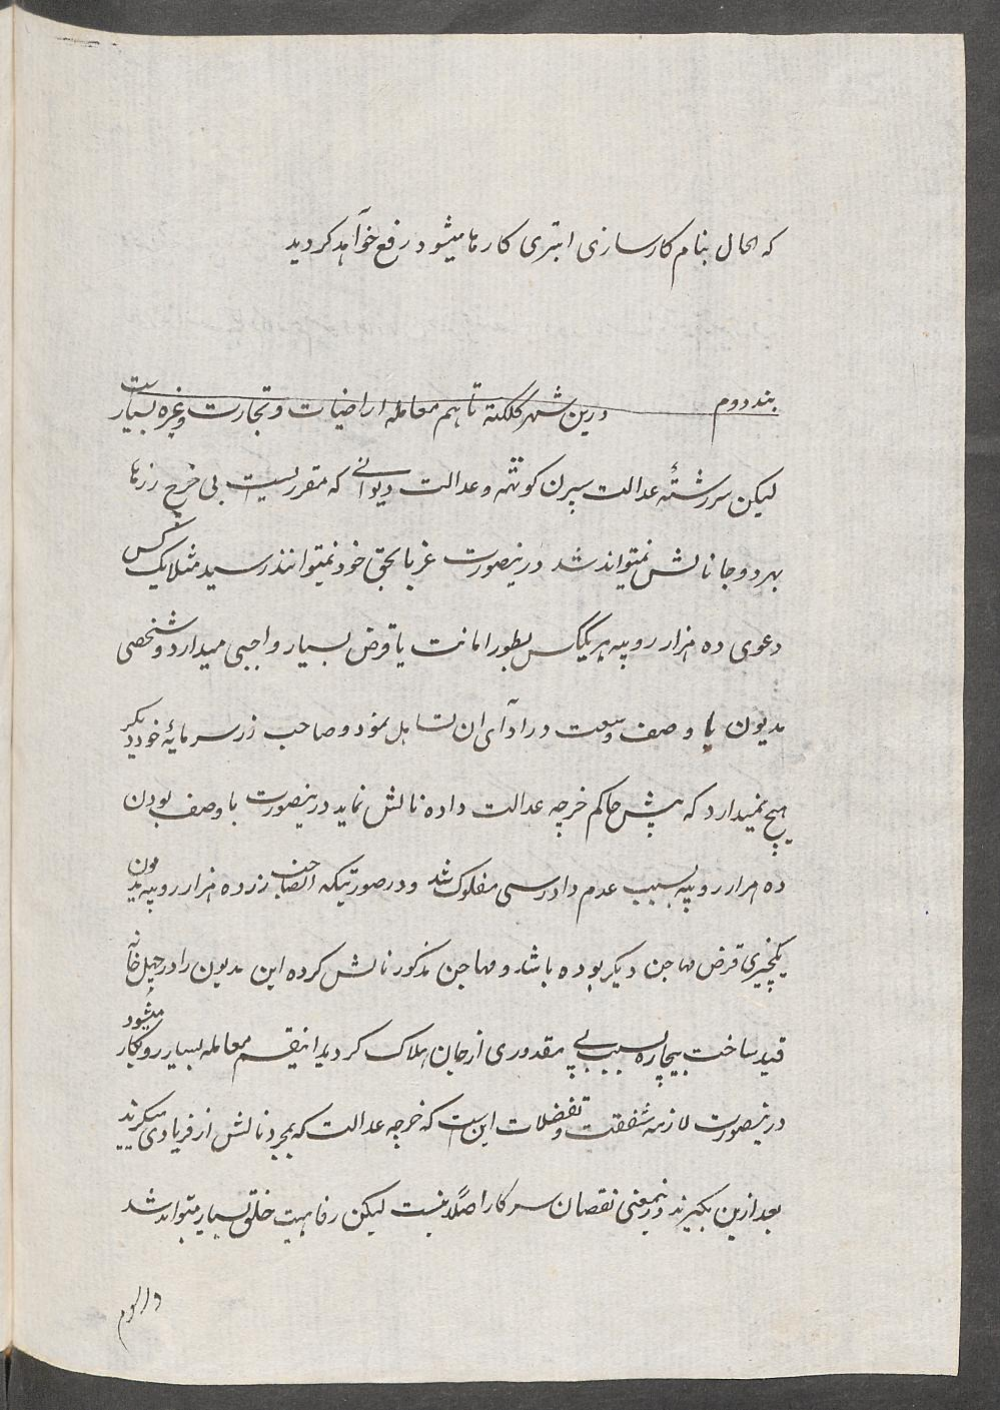 که الحال بنام کارسازی ابتری کارها میشود رفع خواهد کردید
بند دوم درین شهر کلکته تا هم معامله اراضیات و تجارت وغیره بسیارست
لیکن سررشتهٔ عدالت سپرن کوٹه و عدالت دیوانی که مقررلیست بی خرچ زرها
بهر دو جا نالش نمیتواند شد درینصورت غربا بحق خود نمیتوانند رسید مثلا یک کس
دعوی ده هزار روپیه بر یککس بطور امانت یا قرض بسیار واجبی میدارد و شخصی
مدیون با وصف وسعت در ادآی ان تساهل نمود و صاحب زر سرمایهٔ خود دیکر
هیچ نمیدارد که پیش حاکم خرچه عدالت داده نالش نماید درینصورت با وصف بودن
ده هزار روپیه بسبب عدم دادرسی مفلوک شد و درصورتیکه انصاحب زر ده هزار روپیه مدیون
یکچیزی قرض مهاجن دیکر بوده باشد و مهاجن مذکور نالش کرده این مدیون را در جهل خانه
قید ساخت بیچاره بسبب بی مقدوری از جان هلاک کردید اینقسم معامله بسیار روبکار میشود
درینصورت لازمه شفقت و تفضلات این است که خرچه عدالت که بمجرد نالش از فریادی میکیرند
بعد ازین بکیرند درینمعنی نقصان سرکار اصلاً نیست لیکن رفاهیت خلق بسیار میتواند شد